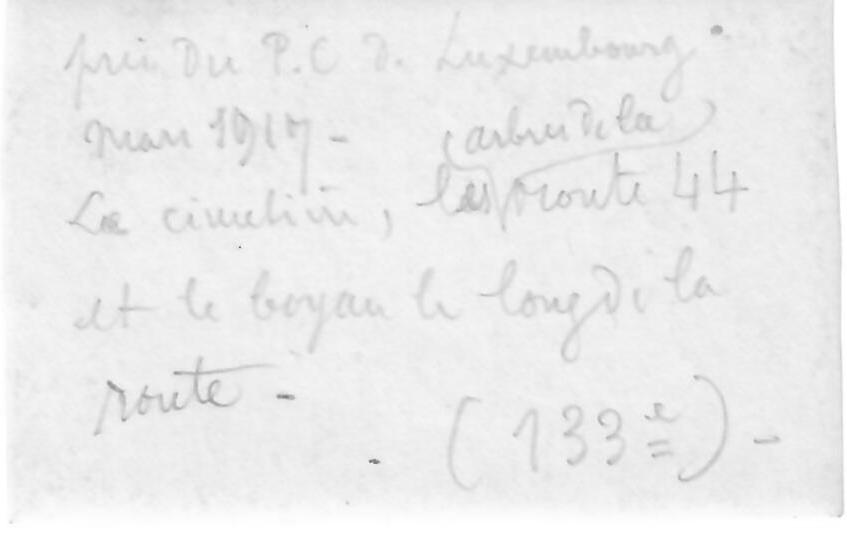 près du P.C d. Luxembourg
mars 1917 -
(arbres de la)
Le cimetière, les route 44
et le boyau le long de la
route -
(133e) -